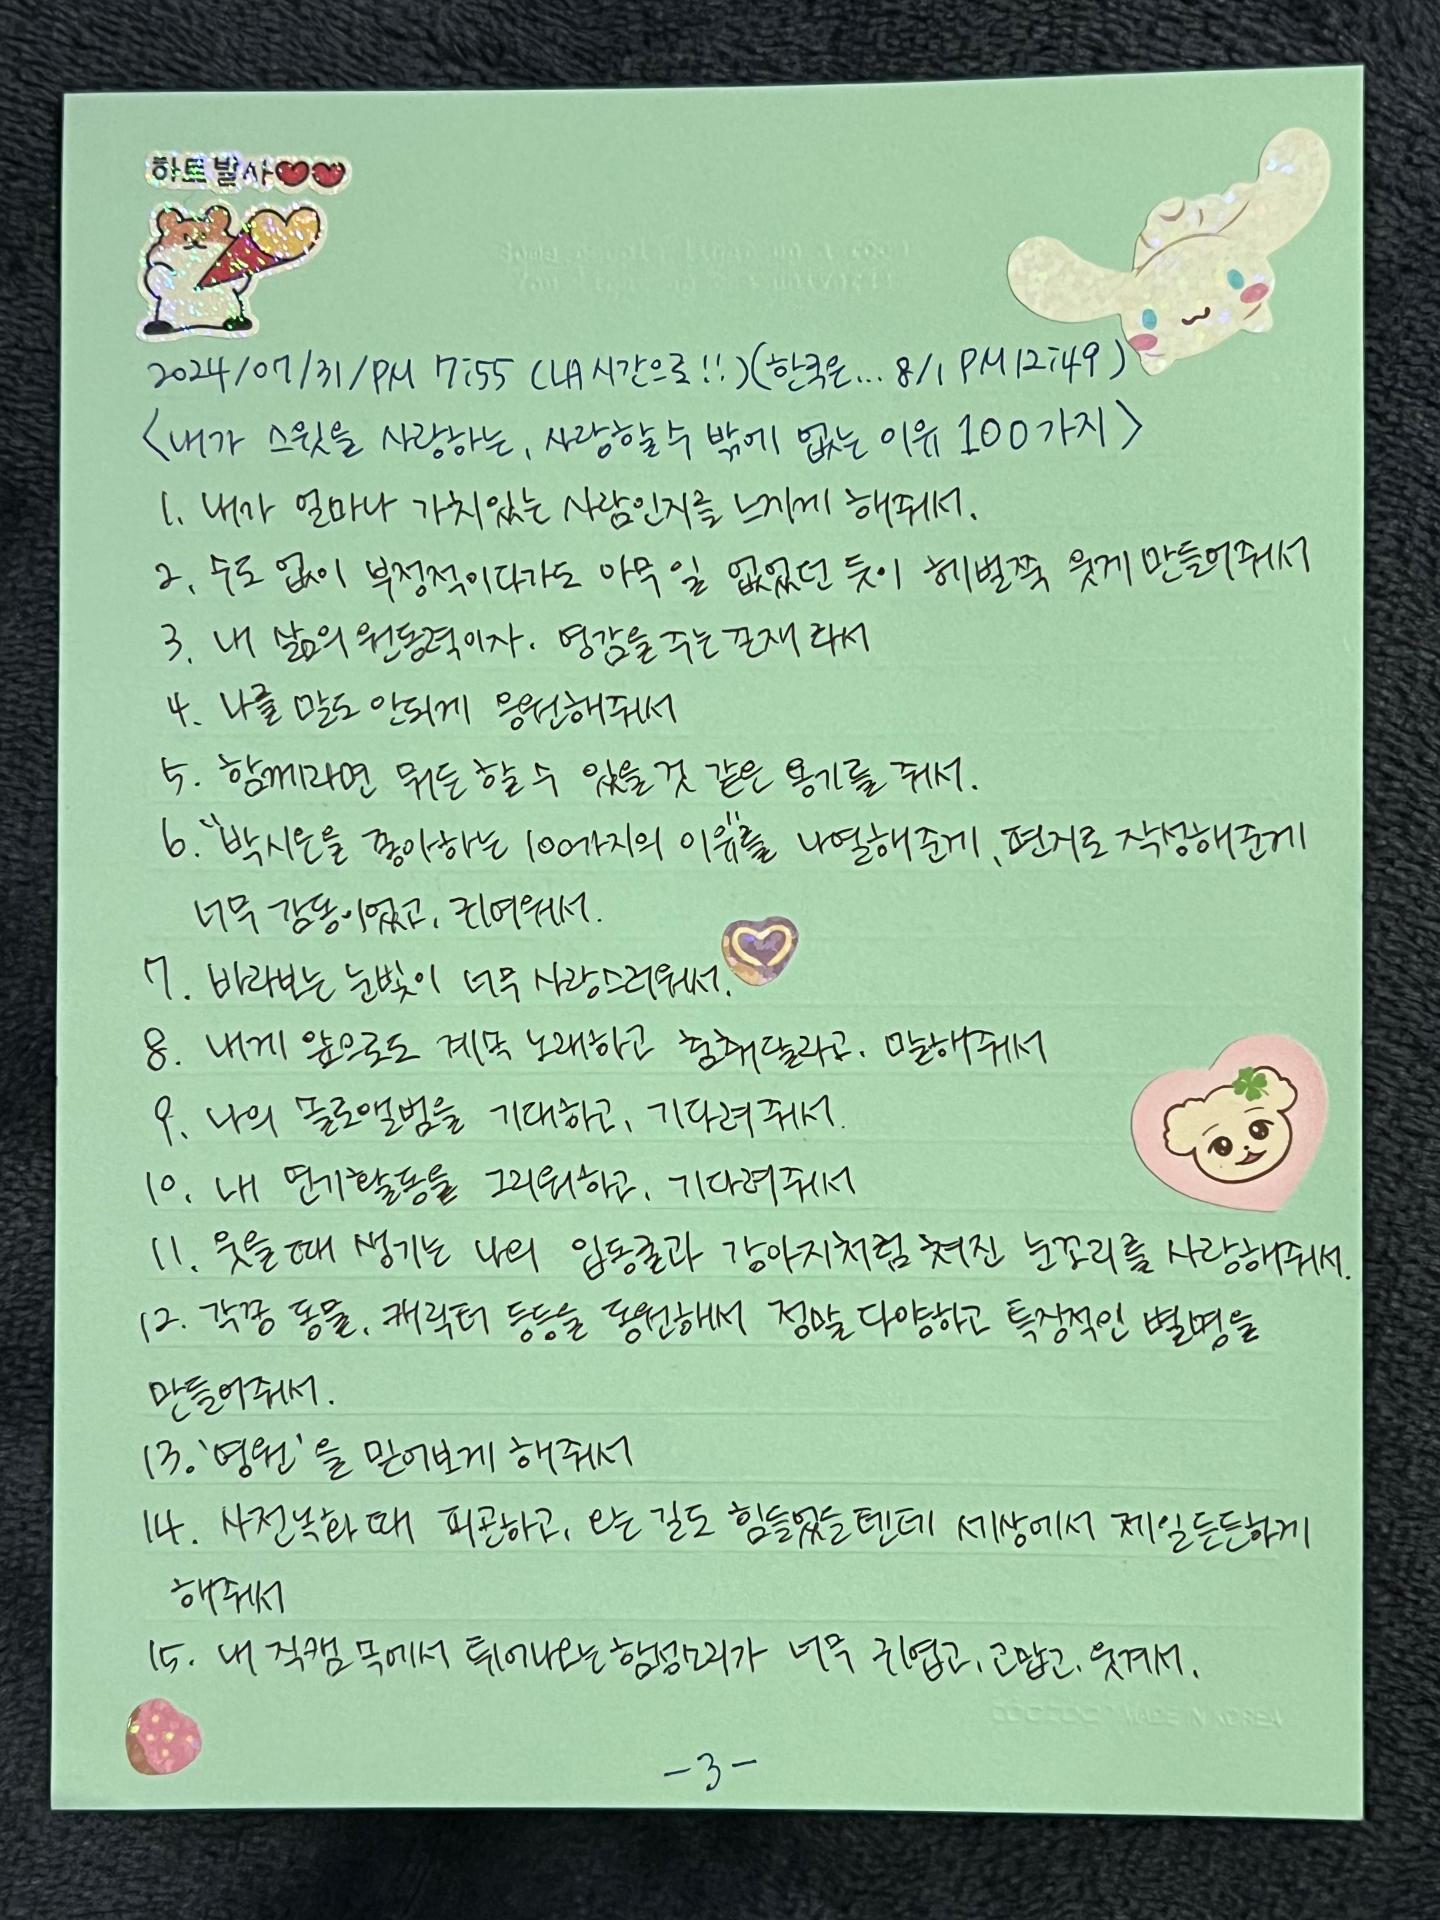 하트발사
2024/07/31/PM 7:55 (LA시간으로!!)(한국은... 8/1 PM12:49)
<내가 스윗을 사랑하는, 사랑할 수 밖에 없는 이유 100가지>
1. 내가 얼마나 가치있는 사람인지를 느끼게 해줘서.
2. 수도 없이 부정적이다가도 아무 일 없었던 듯이 헤벌쭉 웃게 만들어줘서
3. 내 삶의 원동력이자. 영감을 주는 존재라서
4. 나를 말도 안되게 응원해줘서
5. 함께라면 뭐든 할 수 있을 것 같은 용기를 줘서.
6. "박시온을 좋아하는 100가지의 이유"를 나열해준게, 편지로 작성해준게
너무 감동이었고, 귀여워서.
7. 바라보는 눈빛이 너무 사랑스러워서.
8. 내게 앞으로도 계속 노래하고 춤춰달라고, 말해줘서
9. 나의 솔로앨범을 기대하고, 기다려줘서.
10. 내 연기활동을 그리워하고, 기다려줘서
11. 웃을 때 생기는 나의 입동굴과 강아지처럼 쳐진 눈꼬리를 사랑해줘서.
12. 각종 동물, 캐릭터 등등을 동원해서 정말 다양하고 특징적인 별명을
만들어줘서.
13. '영원'을 믿어보게 해줘서
14. 사전녹화 때 피곤하고, 오는 길도 힘들었을텐데 세상에서 제일 든든하게
해줘서
15. 내 직캠 속에서 튀어나오는 함성소리가 너무 귀엽고, 고맙고, 웃겨서.
MADE IN KOREA
-3-